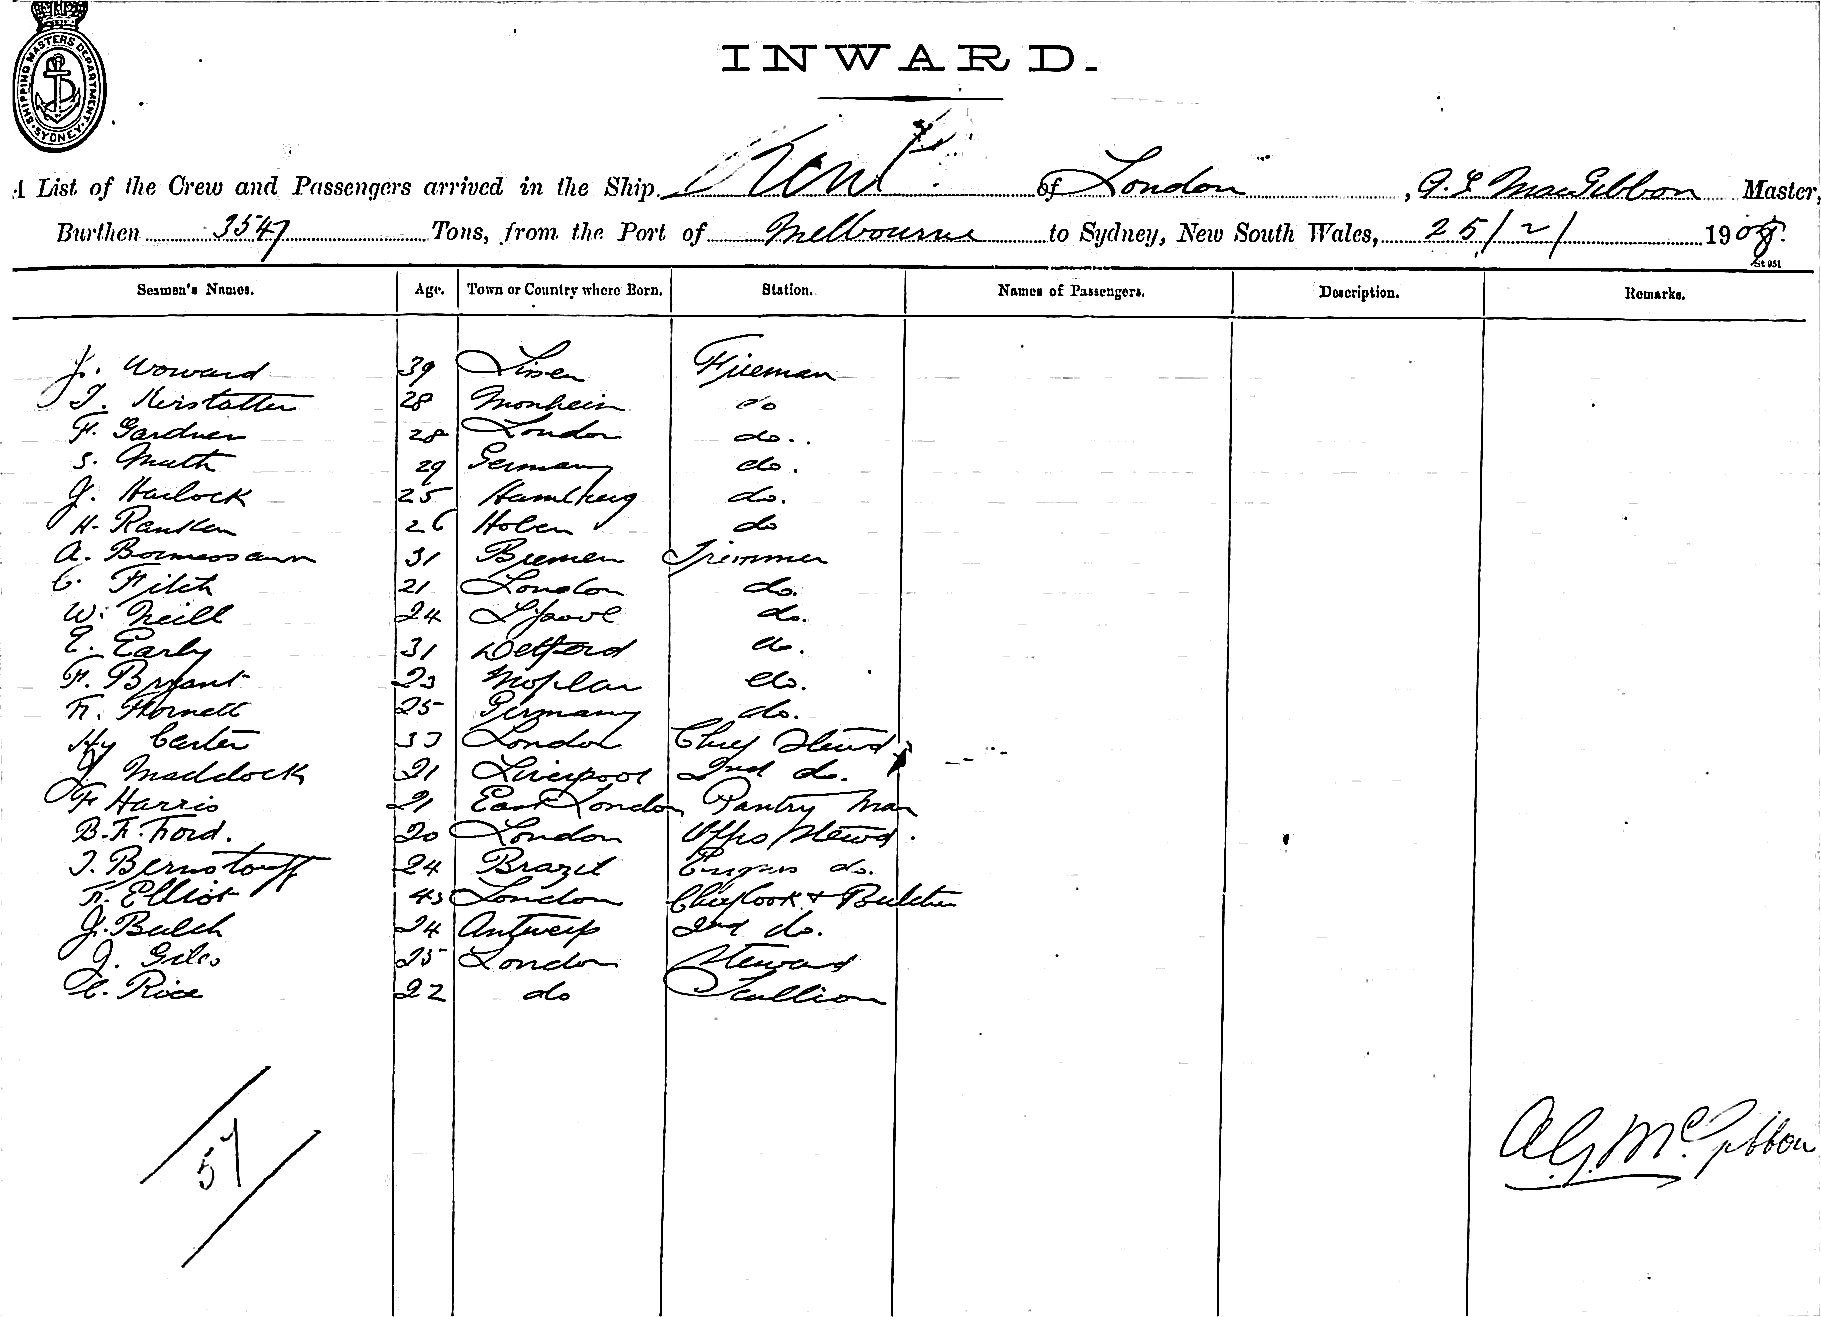 SHIPPING MASTERS DEPARTMENT. SYDNEY
INWARD.
A List of the Crew and Passengers arrived in the Ship Kent of London, Mac Gibbon Master,
Burthen 3547 Tons, from the Port of Melbourne to Sydney, New South Wales, 25/2/ 190
Seamen's Names. Age. Town or Country where Born. Station. Names of Passengers. Description. Remarks.
J. Woward 39 Fireman
28 Monheim do
F. Gardner 28 London do.
S. Muth 29 Germany do.
J. Harlock 25 Hamburg do.
H. Ranken 26 Hoben do
A. 31 Bremen Trimmer
C. Fitch 21 London do.
W. Neill 24 L'pool do.
E. Early 31 Detford do.
F. Bryant 23 do.
F. Hornett 25 Germany do.
Hy Carter 33 London Chief Stewd
J. Maddock 21 Liverpool 2nd do.
F Harris 21 East London Pantry Man
B. F. Ford. 20 London Offrs Stewd.
J. Bernstorff 24 Brazil Engrs do.
F. Elliot 43 London Chief Cook & Butcher
J. Bulch 24 Antwerp 2nd do.
J. Giles 25 London Steward
C. Rice 22 do Scullion
57
A.G. McGibbon